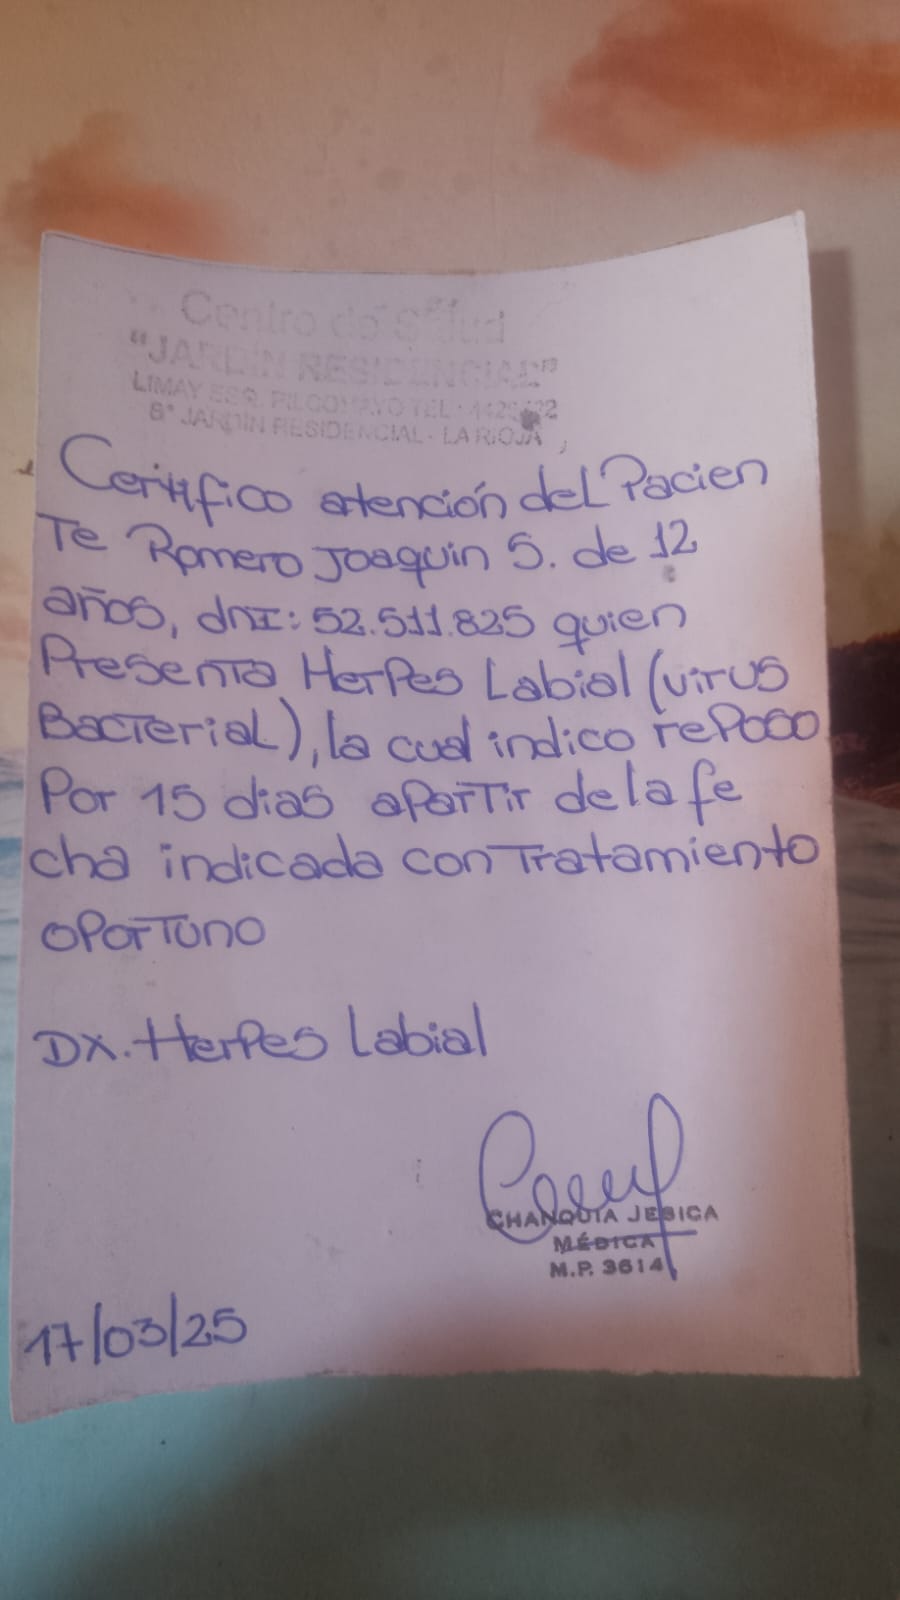 Centro de Salud
"JARDÍN RESIDENCIAL"
LIMAY ESQ. PILCOMAYO TEL.
6° JARDÍN RESIDENCIAL - LA RIOJA
Certifico atención del Pacien
Te Romero Joaquin S. de 12
años, dnI: 52.511.825 quien
Presenta Herpes Labial (virus
Bacterial), la cual indico reposo
Por 15 dias apartir de la fe
cha indicada con Tratamiento
oporTuno
DX. Herpes Labial
CHANQUIA JESICA
MÉDICA
M.P. 3614
17/03/25